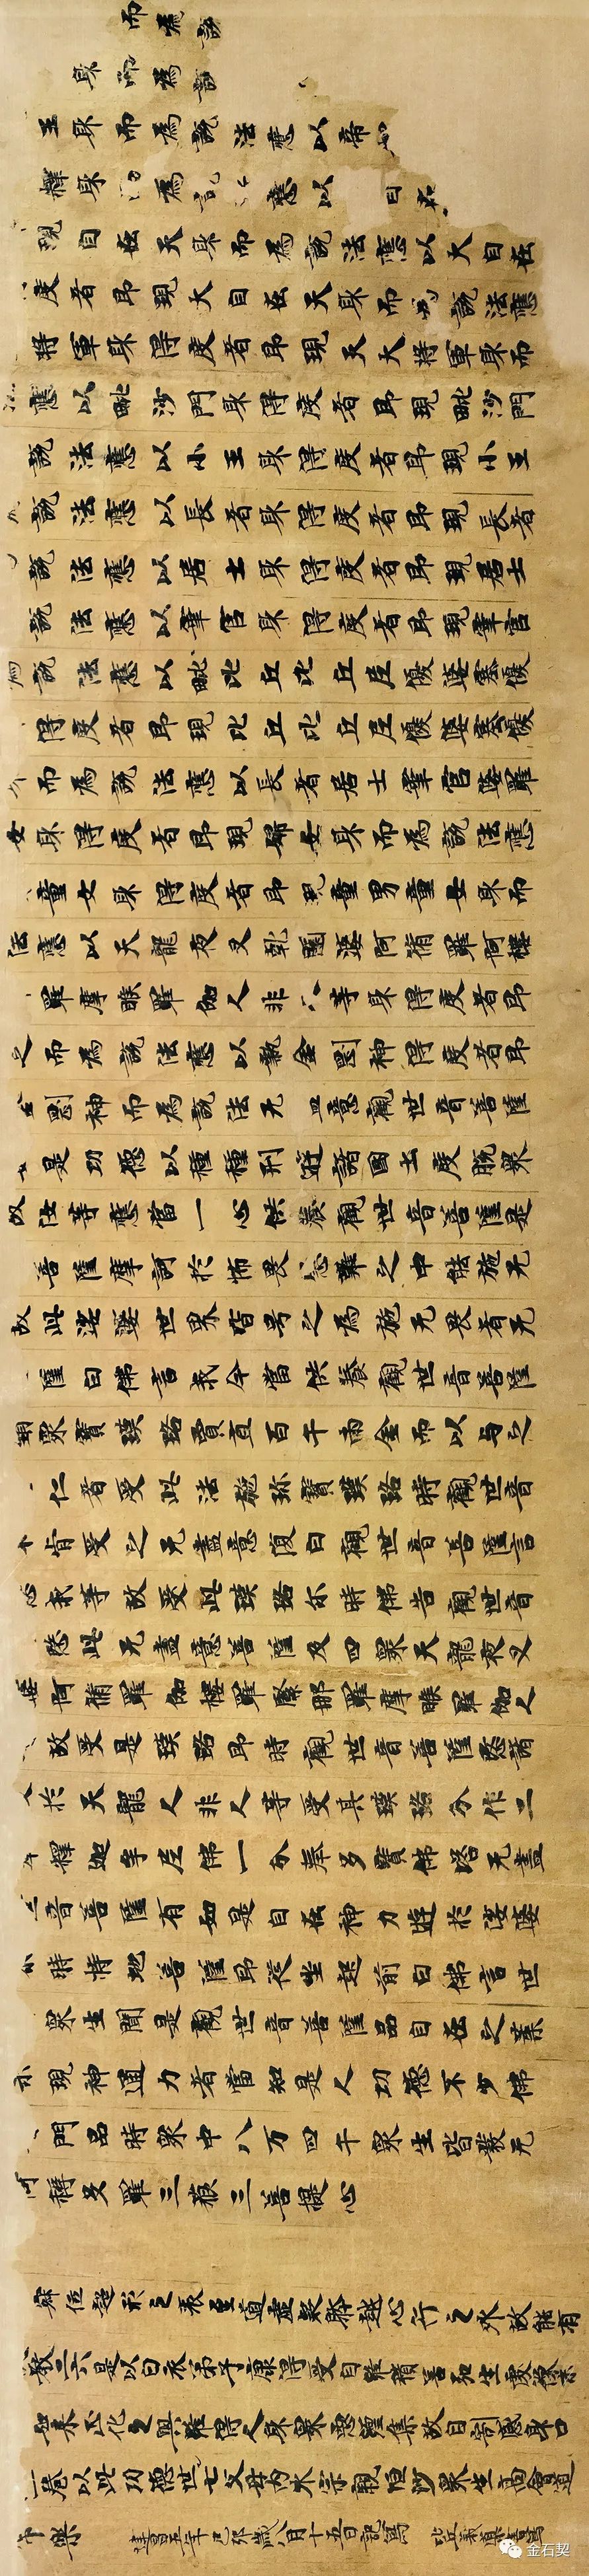 而為說
身而為說
王身而為說法應以帝
釋身 為 應以 自
現自在天身而為說法應以大自在
度者即現大自在天身而為說法應
將軍身得度者即現天大將軍身而
應以毗沙門身得度者即現毗沙門
說法應以小王身得度者即現小王
說法應以長者身得度者即現長者
說法應以居士身得度者即現居士
說法應以宰官身得度者即現宰官
為說法應以毗比丘比丘尼優婆塞優
得度者即現比丘比丘尼優婆塞優
而為說法應以長者居士宰官婆羅
女身得度者即現婦女身而為說法應
童女身得度者即現童男童女身而
法應以天龍夜叉乾闥婆阿脩羅阿樓
羅摩睺羅伽人非人等身得度者即
之而為說法應以執金剛神得度者即
金剛神而為說法无盡意觀世音菩薩
是功德以種種形遊諸國土度脫衆
故汝等應當一心供養觀世音菩薩是
菩薩摩訶於怖畏急難之中能施无
故此娑婆世界皆号之為施无畏者无
薩白佛言我今當供養觀世音菩薩
頸衆寶瓔珞賈直百千兩金而以与之
仁者受此法施珎寶瓔珞時觀世音
不肯受之无盡意復白觀世音菩薩言
愍我等故受此瓔珞尒時佛告觀世音
愍此无盡意菩薩及四衆天龍夜叉
婆阿脩羅伽樓羅緊那羅摩睺羅伽人
故受是瓔珞即時觀世音菩薩愍諸
於天龍人非人等受其瓔珞分作二
釋迦牟尼佛一分奉多寶佛塔无盡
世音菩薩有如是自在神力遊於娑婆
尒時持地菩薩即從坐起前白佛言世
衆生聞是觀世音菩薩品自在之業
示現神通力者當知是人功德不少佛
門品時衆中八万四千衆生皆發无
阿耨多羅三藐三菩提心
位超形之表至道虛凝跡越心行之外故能有
教三六是以白衣弟子康得受自惟積善弘生處像末
如來正化之興雖得人身衆惡纏集故自割減身口
一卷以此功德世七父母內外宗親恒沙衆生高會道
常樂 建昌五年己卯歲八月十五日記寫 比丘義 寫
金石契